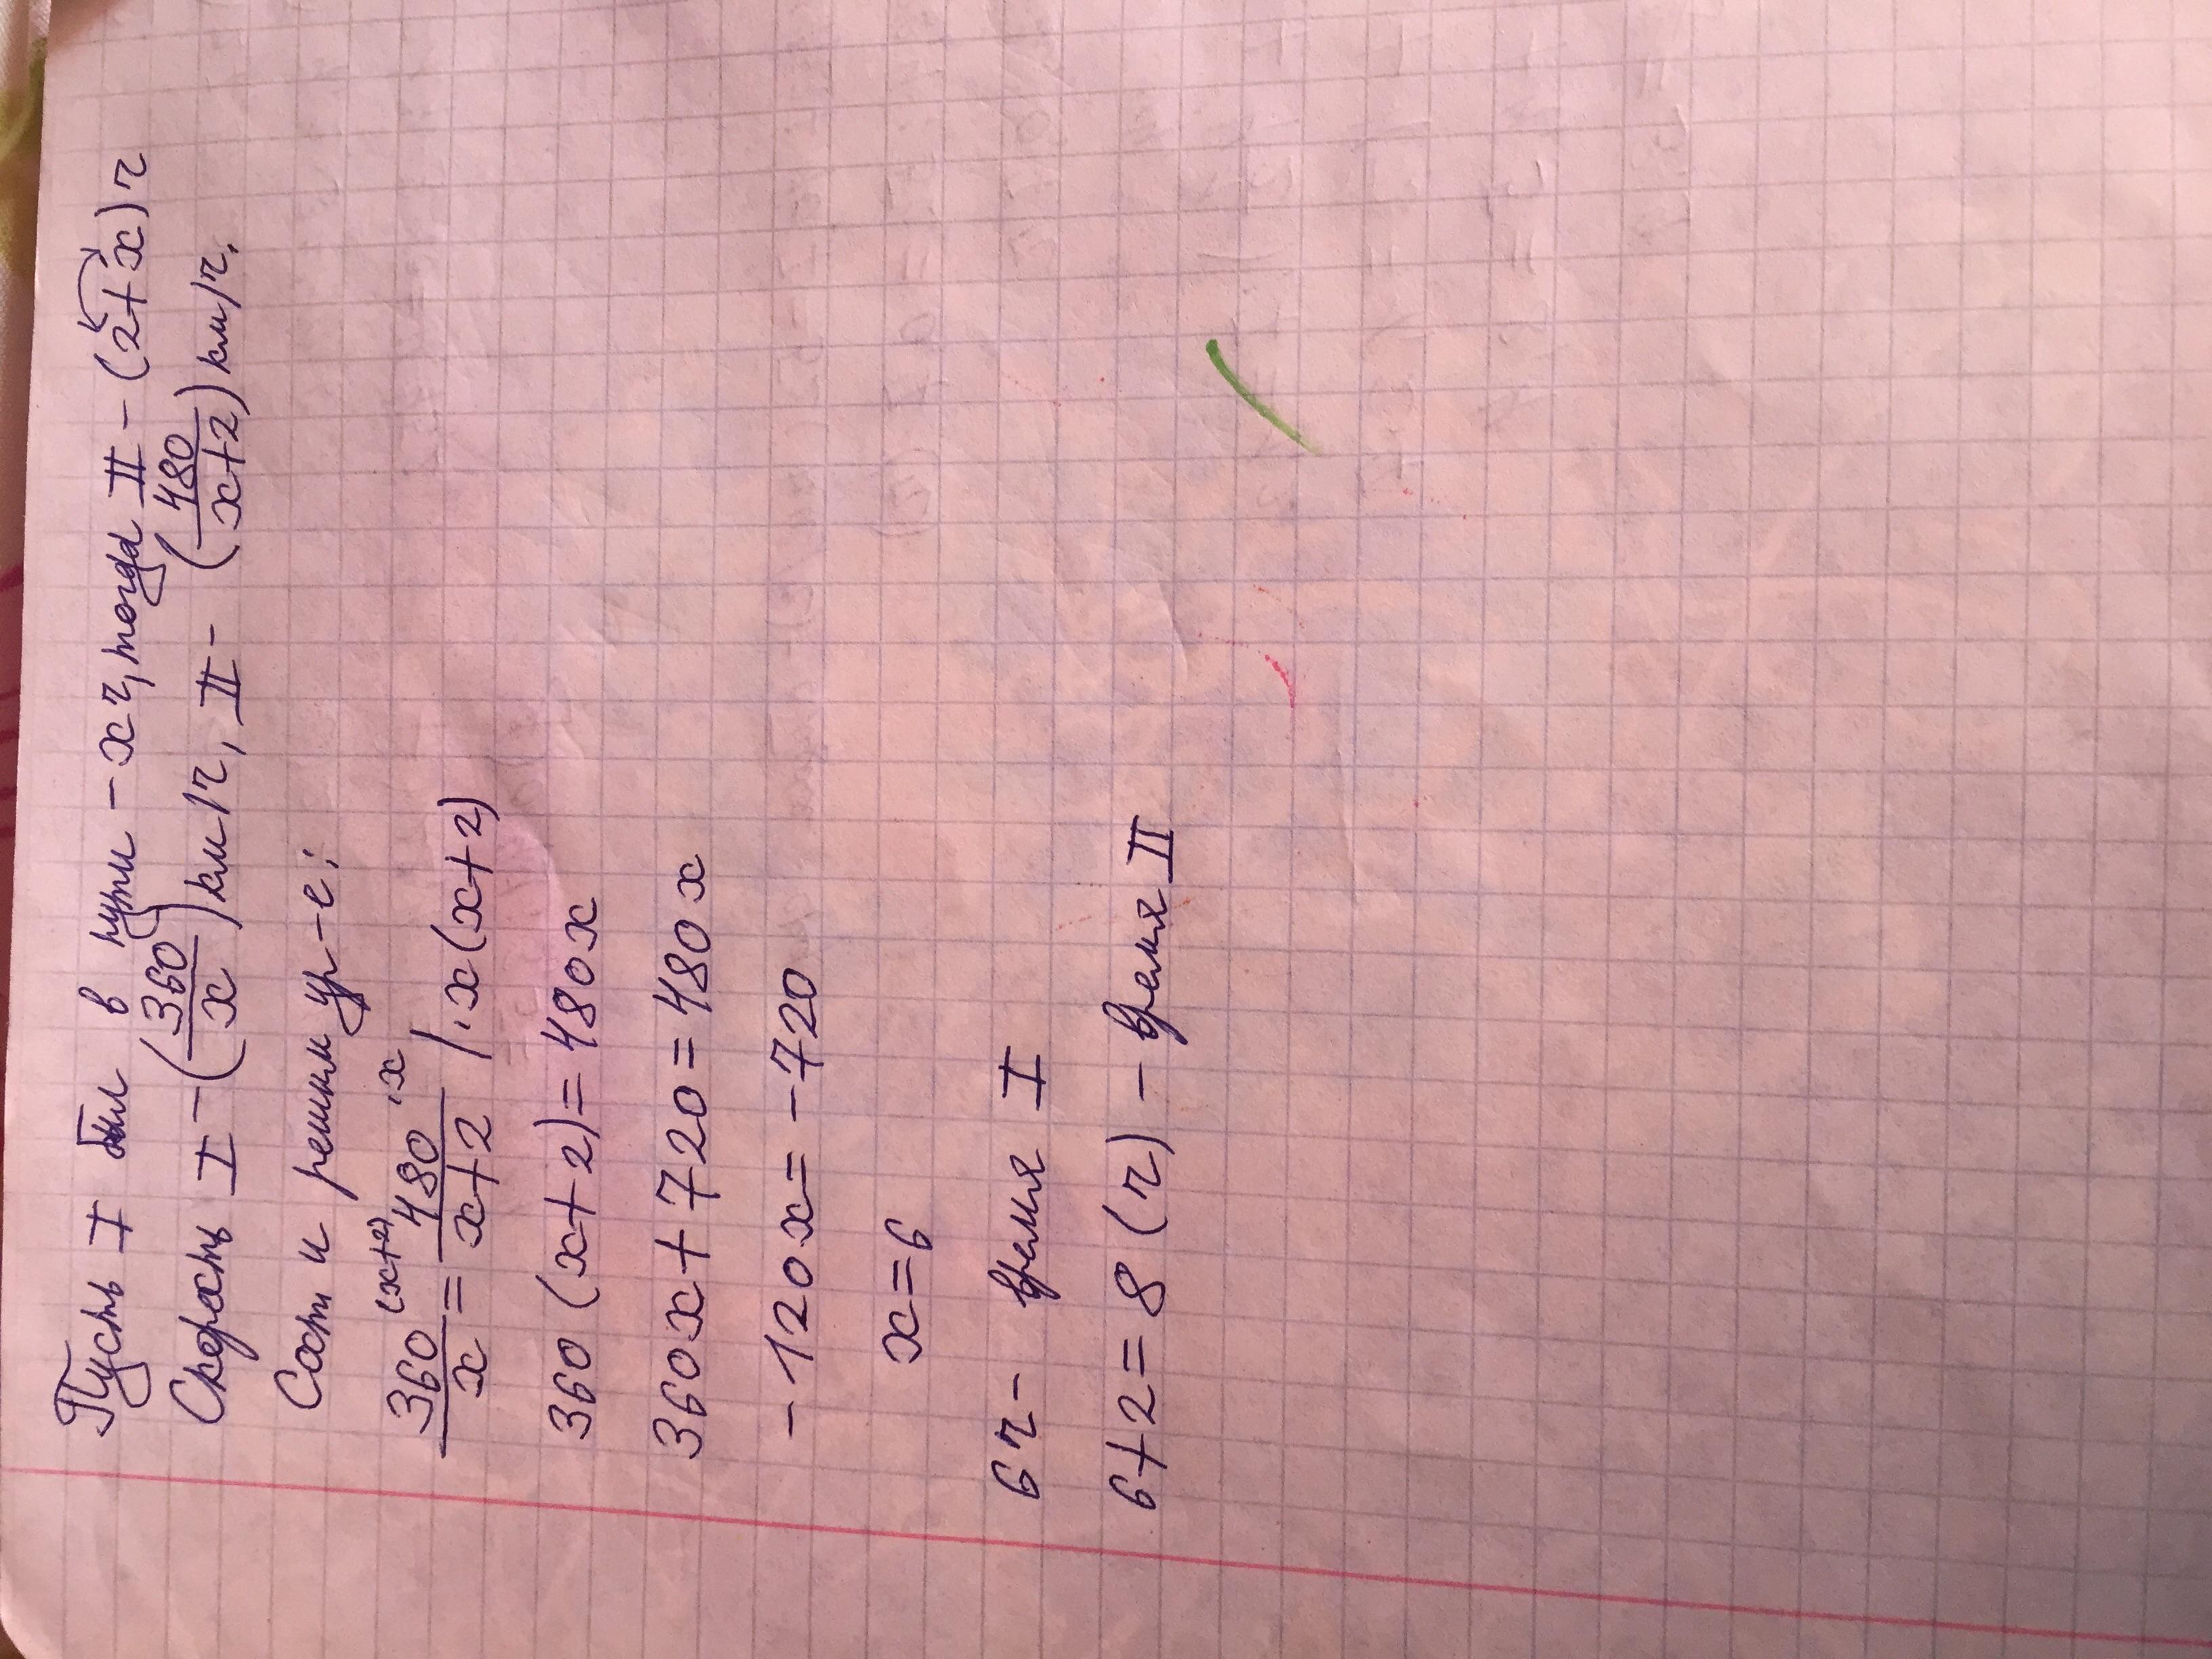 Пусть I был в пути - x ч, тогда II - (2+x) ч
Скорость I - (360/x) км/ч, II - (480/x+2) км/ч.
Сост и решим ур-е:
360/x ^(x+2) = 480/x+2 ^·x / ·x(x+2)
360(x+2)=480x
360x+720=480x
-120x=-720
x=6
6 ч - время I
6+2=8 (ч) - время II